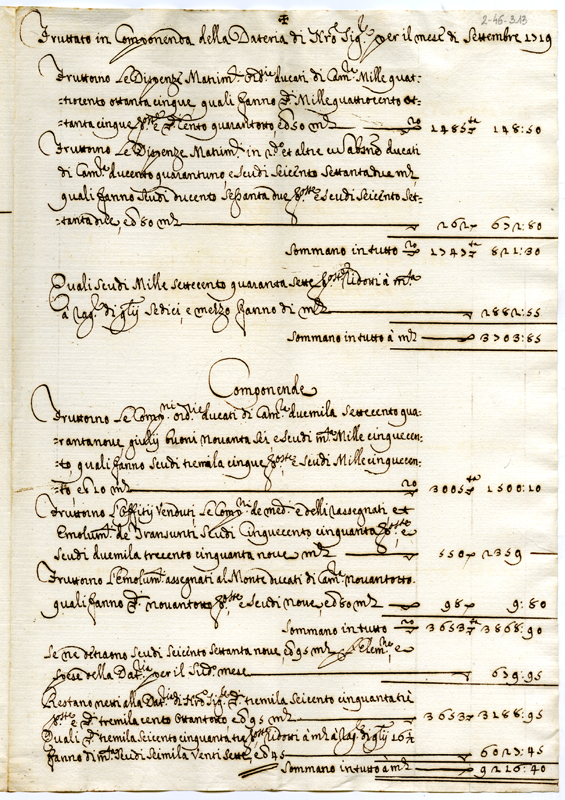 2-46.313
Fruttato in Componenda della Dateria di Nro Sig.re per il mese di Settembre 1719
Fruttorno Le Dispenze Matrim. ducati di Cam.ra Mille quat-
-trocento ottanta cinque quali fanno Mille quattrocento ot-
-tanta cinque e Cento quarantotto, ed 50 m.ta 1485 148:50
Fruttorno Le Dispenze Matrim. in et altre ducati
di Cam.ra ducento quarantuno, e scudi seicento settantadua m.ta
quali fanno scudi ducento sessanta due e scudi seicento set-
-tantadue, ed 80 m.ta 262 672:80
Sommano in tutto 1747 821:30
Quali scudi Mille settecento quaranta sette ridotti à m.ta
à rag. di giulij sedici, e mezzo fanno di m.ta 2882:55
Sommano in tutto à m.ta 3703:85
Componende
Fruttorno Le Comp.ni ord.rie ducati di Cam.ra duemila settecento qua-
-rantanove giulij buoni novanta sei e scudi m.ta Mille cinquecen-
-to quali fanno scudi tremila cinque e scudi Mille cinquecen-
-to, ed 10 m.ta 3005 1500:10
Fruttorno L'offitij Venduti, Le Comp.ni de med. e delli rassegnati et
Emolum. de Transunti scudi Cinquecento cinquanta e
scudi duemila trecento cinquanta nove m.ta 550 2359
Fruttorno L'Emolum. assegnati al Monte ducati di Cam.ra novantotto
quali fanno novantotto e scudi nove, ed 80 m.ta 98 9:80
Sommano in tutto 3653 3868:90
Se ne detraono scudi seicento settanta nove, ed 95 m.ta p. Elem.ne e
spese della Dat.ria per il sud.o mese 679:95
Restano netti alla Dat.ria di Nro Sig.re tremila seicento cinquanta trè
e tremila cento ottantotto ed 95 m.ta 3653 3188:95
Quali tremila seicento cinquanta tre ridotti à m.ta à rag. di giulij 16½
fanno di m.ta scudi seimila venti sette, ed 45 6027:45
Sommano in tutto à m.ta 9216:40